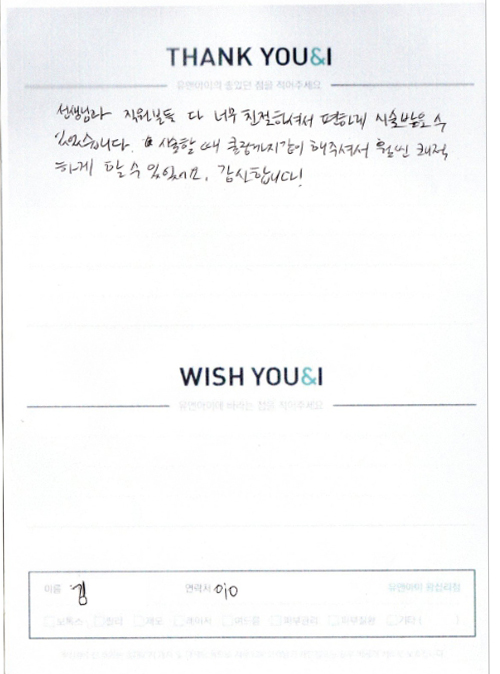 THANK YOU&I
유앤아이의 좋았던 점을 적어주세요
선생님과 직원분들 다 너무 친절하셔서 편하게 시술받을 수
있었습니다. 시술할 때 쿨링까지 같이 해주셔서 훨씬 쾌적
하게 할 수 있었어요. 감사합니다!
WISH YOU&I
유앤아이에 바라는 점을 적어주세요
이름 김
연락처 010
유앤아이 왕십리점
보톡스 필러 제모 레이저 여드름 피부관리 피부질환 기타 ( )